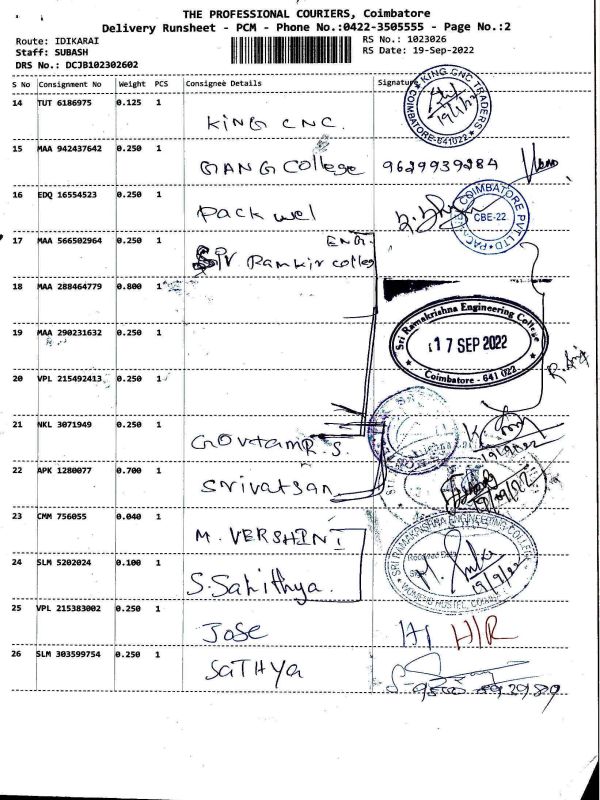 THE PROFESSIONAL COURIERS, Coimbatore
Delivery Runsheet - PCM - Phone No.:0422-3505555 - Page No.:2
Route: IDIKARAI
Staff: SUBASH
DRS No.: DCJB102302602
RS No.: 1023026
RS Date: 19-Sep-2022
S No Consignment No Weight PCS Consignee Details Signature
14 TUT 6186975 0.125 1
KING CNC.
KING CNC TRADERS
COIMBATORE-641022
15 MAA 942437642 0.250 1
GANG College 9629939284
16 EDQ 16554523 0.250 1
Pack wel
COIMBATORE PVT LTD
CBE-22
17 MAA 566502964 0.250 1
ENG.
Sir Ramkir colleg
18 MAA 288464779 0.800 1
19 MAA 290231632 0.250 1
Sri Ramakrishna Engineering College
17 SEP 2022
Coimbatore - 641 022
20 VPL 215492413 0.250 1
21 NKL 3071949 0.250 1
GOVtamR.S.
19/9/2022
22 APK 1280077 0.700 1
Srivatsan
19/09/22
23 CMM 756055 0.040 1
M. VERSHINI
24 SLM 5202024 0.100 1
S.Sahithya.
SRI RAMAKRISHNA ENGINEERING COLLEGE
WOMENS HOSTEL
19/9/22
25 VPL 215383002 0.250 1
JOSE H/R
26 SLM 303599754 0.250 1
SATHYA